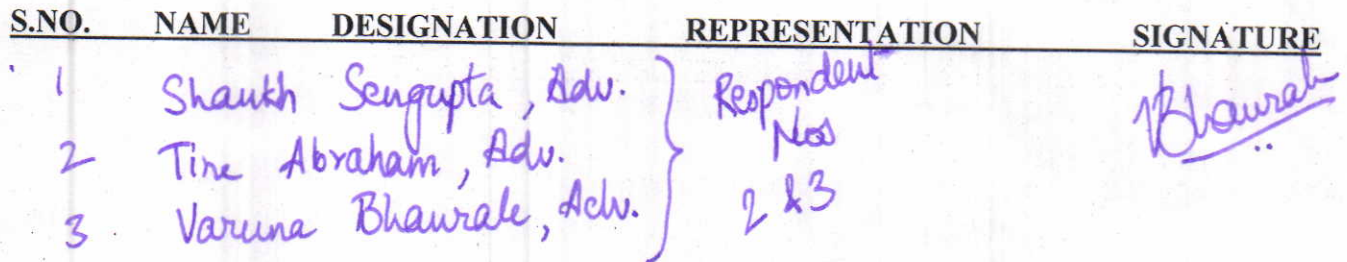 S.NO. NAME DESIGNATION REPRESENTATION SIGNATURE
1 Shaukh Sengupta, Adv. Respondent Bhaurale
2 Tine Abraham, Adv. Nos
3 Varuna Bhaurale, Adv. 2 & 3